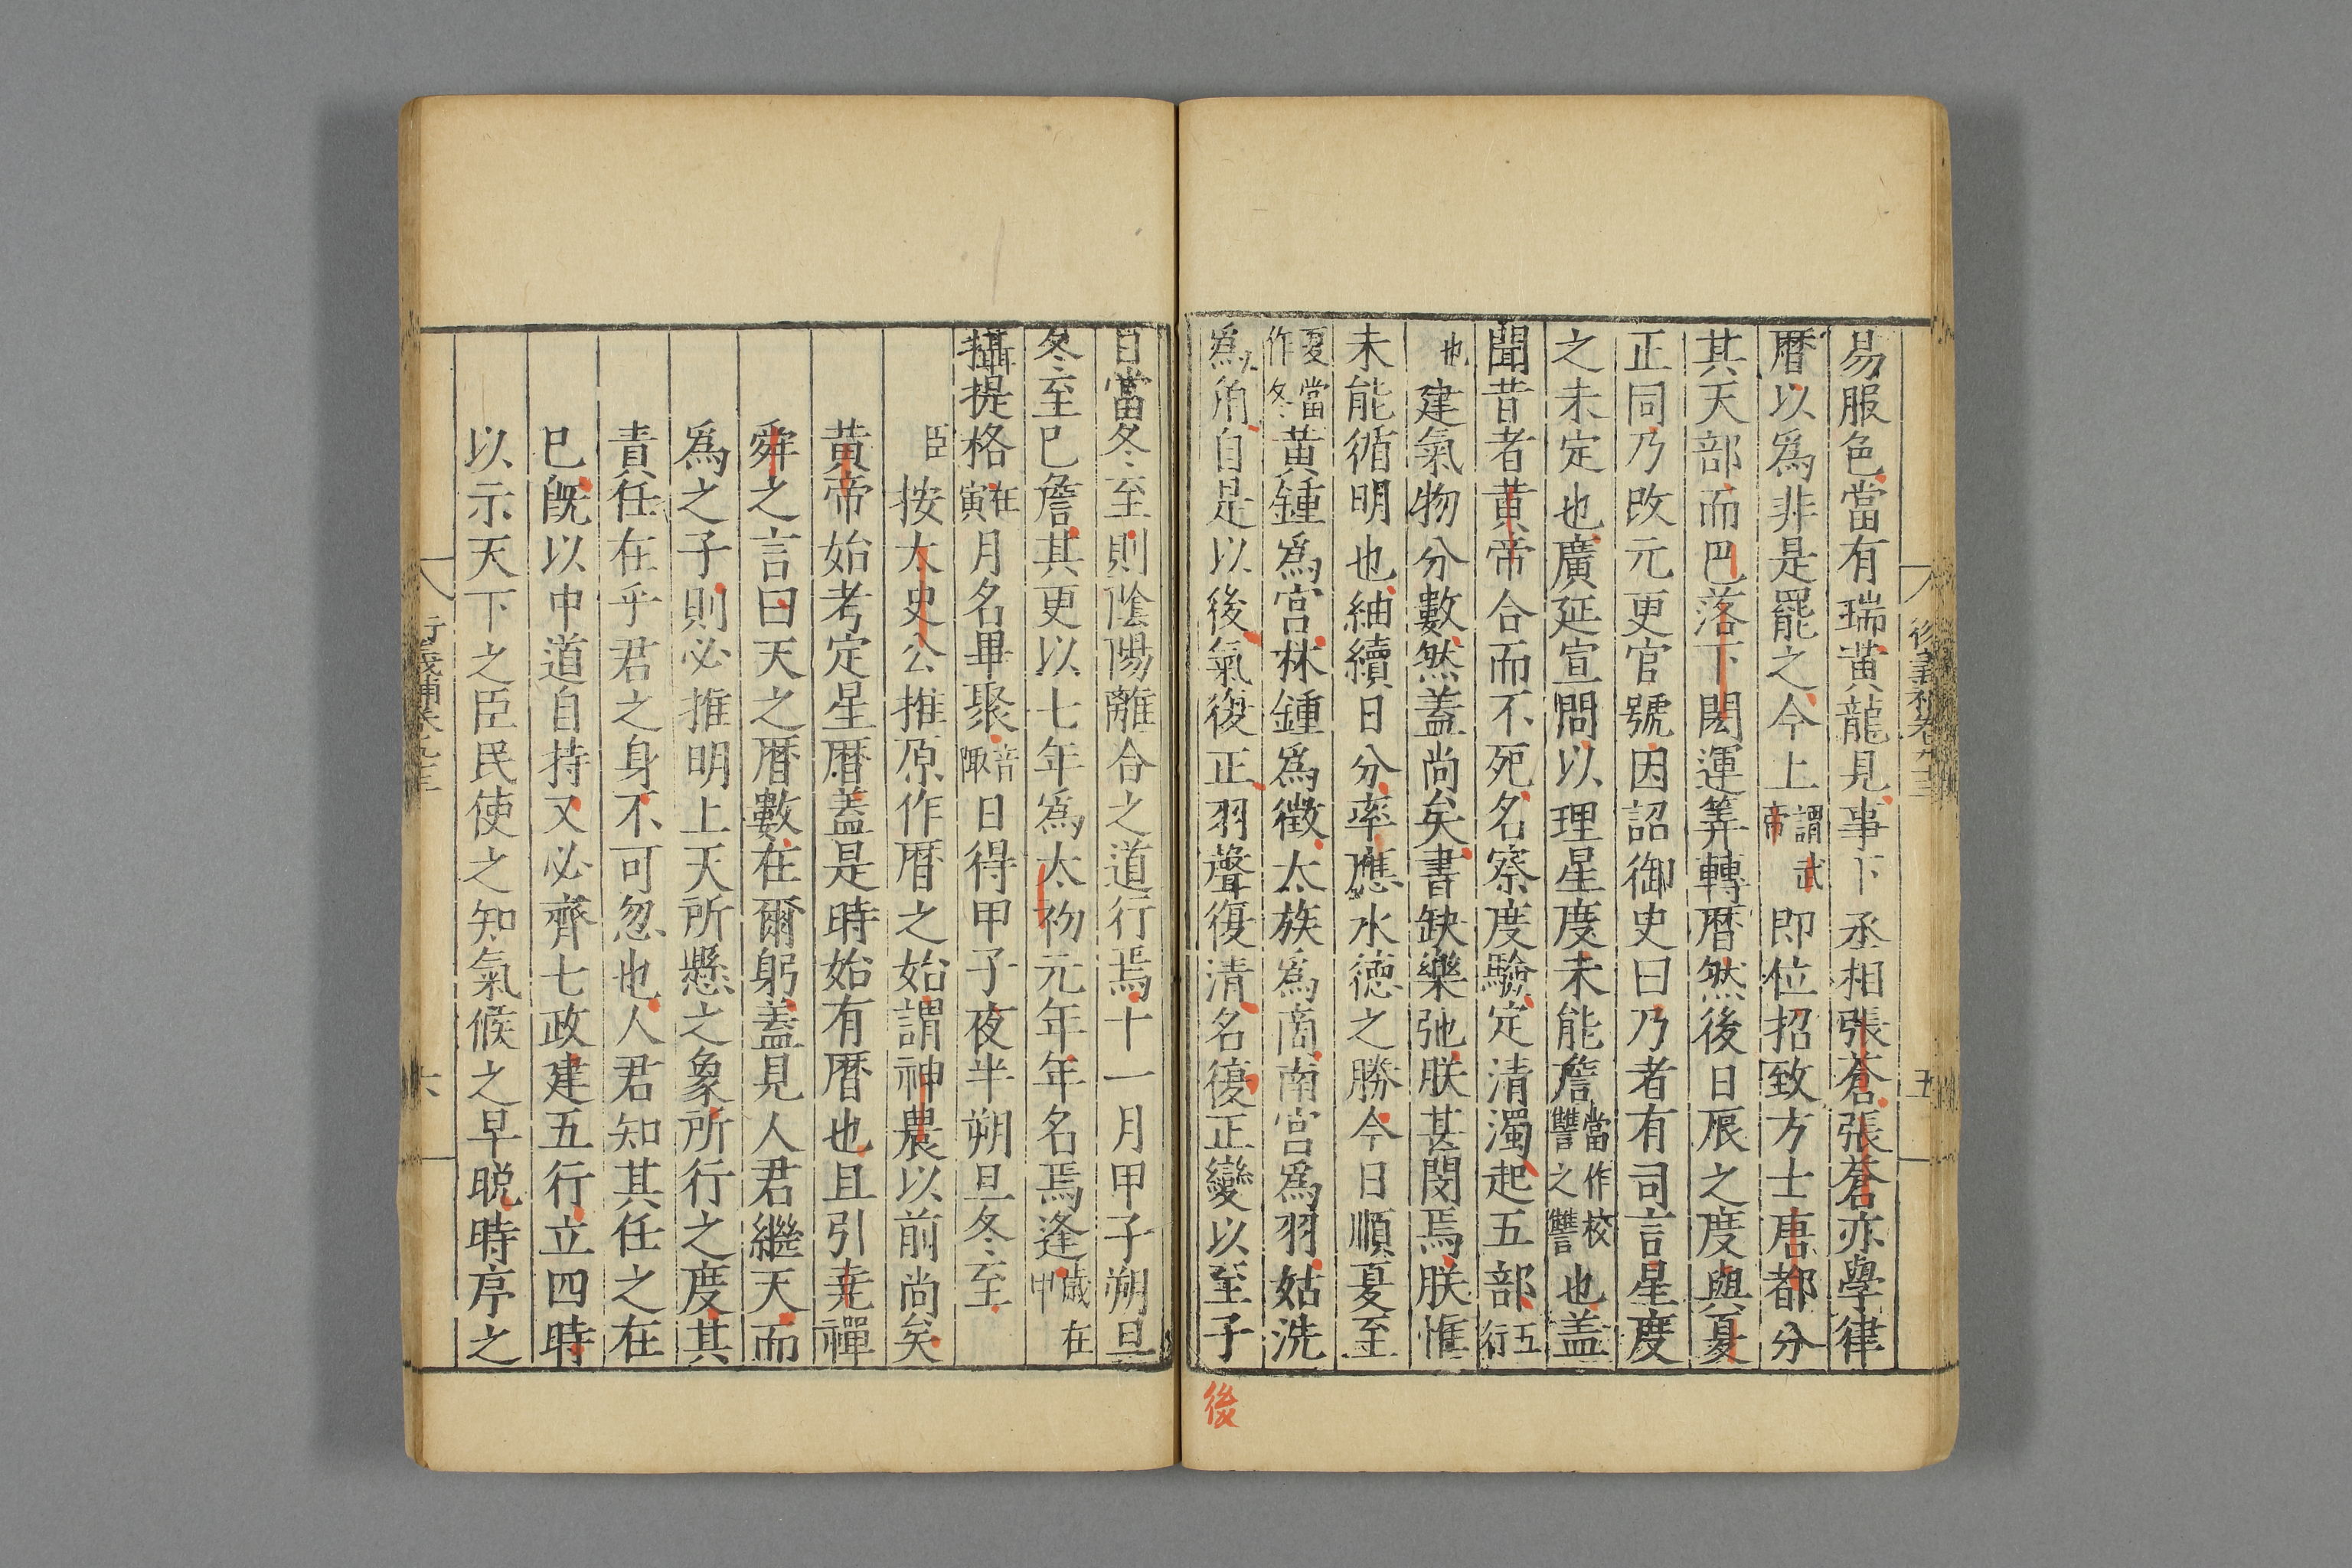 易服色當有瑞黄龍見事下丞相張蒼張蒼亦學律
暦以爲非是罷之今上謂武帝即位招致方士唐都分
其天部而巴落下閎運筭轉暦然後日辰之度與夏
正同乃改元更官號因詔御史曰乃者有司言星度
之未定也廣延宣問以理星度未能詹當作校讐之讐也盖
聞昔者黄帝合而不死名察度驗定清濁起五部五行
也建氣物分數然盖尚矣書缺樂弛朕甚閔焉朕惟
未能循明也紬績日分率應水德之勝今日順夏至
夏當作冬黄鍾爲宫林鍾爲徵太族爲商南宫爲羽姑洗
爲角自是以後氣復正羽聲復清名復正變以至子
後
日當冬至則陰陽離合之道行焉十一月甲子朔旦
冬至已詹其更以七年爲太初元年年名焉逢歳在甲
攝提格在寅月名畢聚音陬日得甲子夜半朔旦冬至
臣按太史公推原作暦之始謂神農以前尚矣
黄帝始考定星暦盖是時始有暦也且引尭禪
舜之言曰天之暦數在爾躬盖見人君繼天而
爲之子則必推明上天所懸之象所行之度其
責任在乎君之身不可忽也人君知其任之在
已旣以中道自持又必齊七政建五行立四時
以示天下之臣民使之知氣候之早晚時序之
六